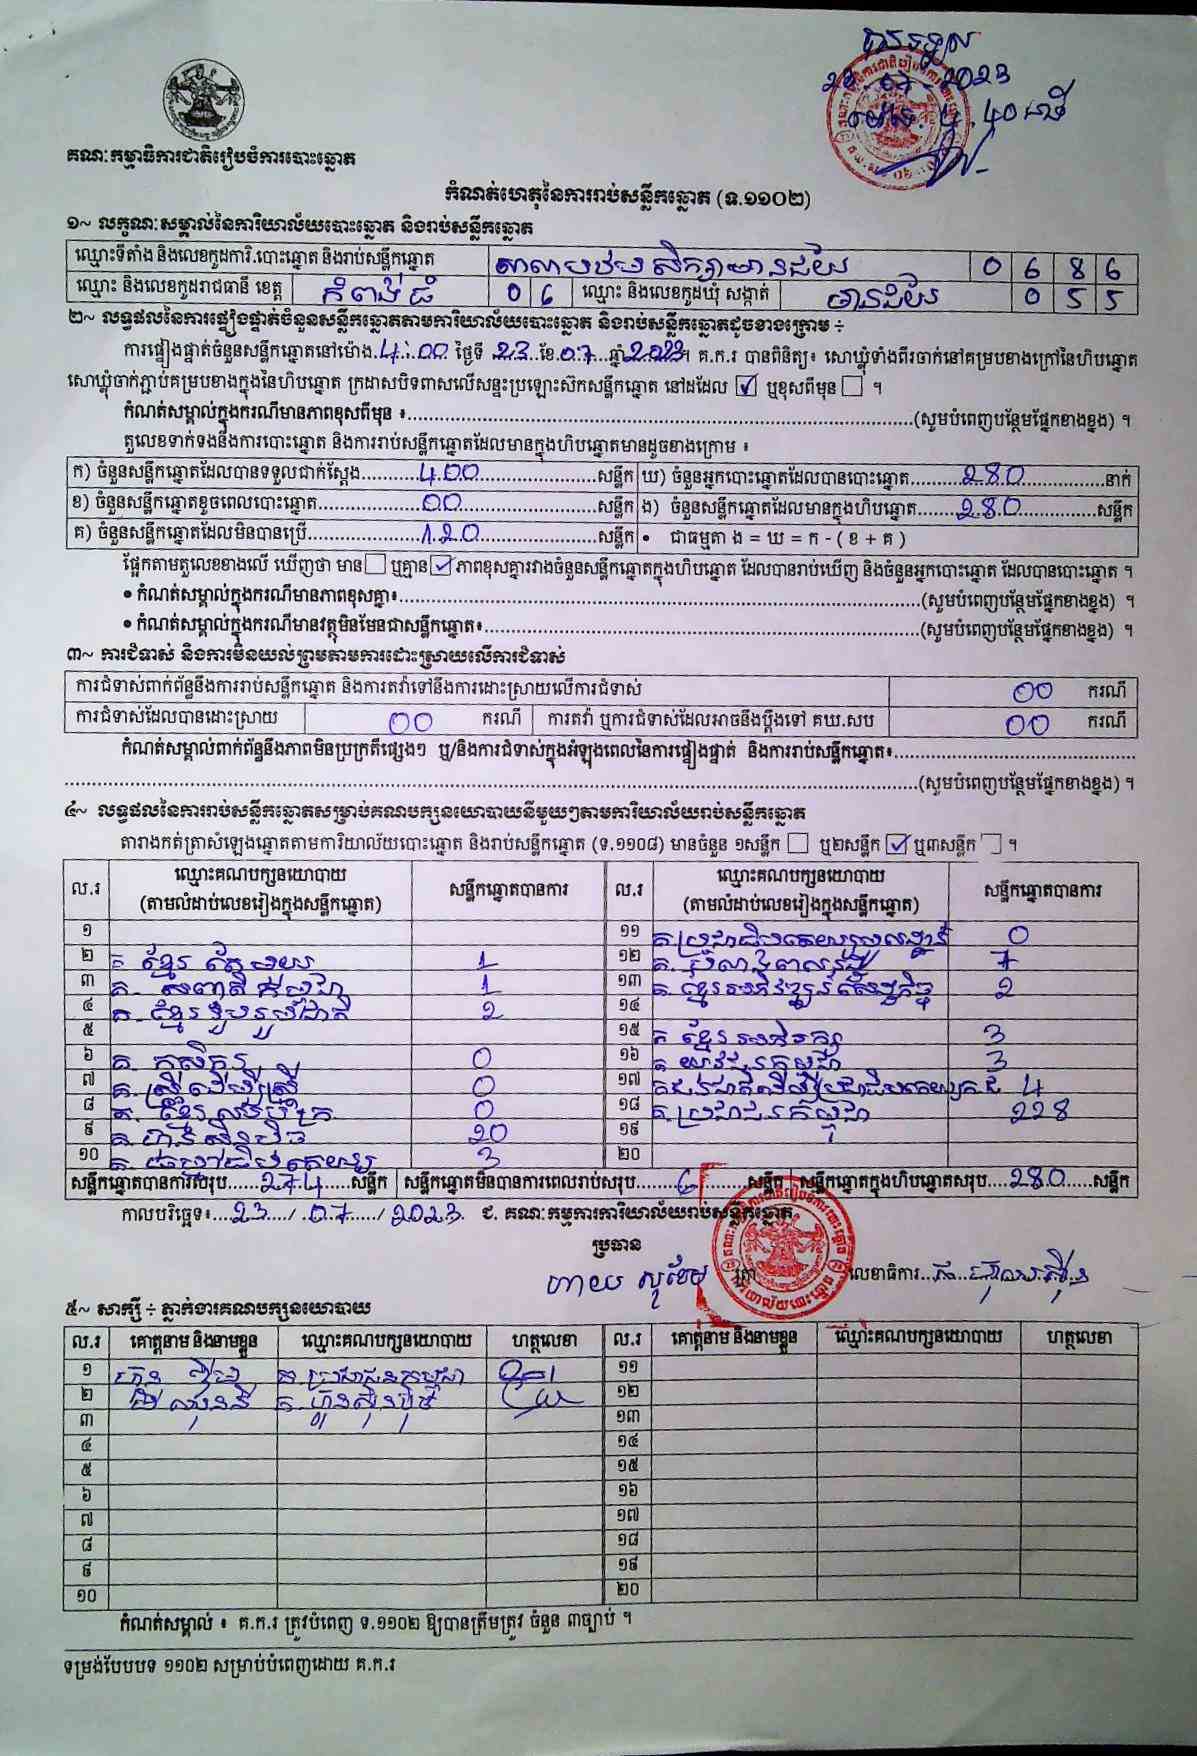 បានទទួល
23 - 07 - 2023
គណៈកម្មាធិការជាតិរៀបចំការបោះឆ្នោត
កំណត់ហេតុនៃការរាប់សន្លឹកឆ្នោត (ទ.១១០២)
១~ លក្ខណៈសម្គាល់នៃការិយាល័យបោះឆ្នោត និងរាប់សន្លឹកឆ្នោត
ឈ្មោះទីតាំង និងលេខកូដការិ.បោះឆ្នោត និងរាប់សន្លឹកឆ្នោត សាលាបឋមសិក្សាមានជ័យ 0 6 8 6
ឈ្មោះ និងលេខកូដរាជធានី ខេត្ត កំពង់ធំ 0 6 ឈ្មោះ និងលេខកូដឃុំ សង្កាត់ មានជ័យ 0 5 5
២~ លទ្ធផលនៃការផ្ទៀងផ្ទាត់ចំនួនសន្លឹកឆ្នោតតាមការិយាល័យបោះឆ្នោត និងរាប់សន្លឹកឆ្នោតដូចខាងក្រោម ÷
ការផ្ទៀងផ្ទាត់ចំនួនសន្លឹកឆ្នោតនៅម៉ោង 4:00 ថ្ងៃទី 23 ខែ 07 ឆ្នាំ 2023។ គ.ក.រ បានពិនិត្យ៖ សោឃ្លុំទាំងពីរចាក់នៅគម្របខាងក្រៅនៃហិបឆ្នោត
សោឃ្លុំចាក់ភ្ជាប់គម្របខាងក្នុងនៃហិបឆ្នោត ក្រដាសបិទពាសលើសន្ទះប្រឡោះស៊កសន្លឹកឆ្នោត នៅដដែល ☑ ឬខុសពីមុន ☐ ។
កំណត់សម្គាល់ក្នុងករណីមានភាពខុសពីមុន ៖..........(សូមបំពេញបន្ថែមផ្នែកខាងខ្នង) ។
តួលេខទាក់ទងនឹងការបោះឆ្នោត និងការរាប់សន្លឹកឆ្នោតដែលមានក្នុងហិបឆ្នោតមានដូចខាងក្រោម ៖
ក) ចំនួនសន្លឹកឆ្នោតដែលបានទទួលជាក់ស្តែង 400 សន្លឹក ឃ) ចំនួនអ្នកបោះឆ្នោតដែលបានបោះឆ្នោត 280 នាក់
ខ) ចំនួនសន្លឹកឆ្នោតខូចពេលបោះឆ្នោត 00 សន្លឹក ង) ចំនួនសន្លឹកឆ្នោតដែលមានក្នុងហិបឆ្នោត 280 សន្លឹក
គ) ចំនួនសន្លឹកឆ្នោតដែលមិនបានប្រើ 120 សន្លឹក • ជាធម្មតា ង = ឃ = ក - ( ខ + គ )
ផ្អែកតាមតួលេខខាងលើ ឃើញថា មាន ☐ ឬគ្មាន ☑ ភាពខុសគ្នារវាងចំនួនសន្លឹកឆ្នោតក្នុងហិបឆ្នោត ដែលបានរាប់ឃើញ និងចំនួនអ្នកបោះឆ្នោត ដែលបានបោះឆ្នោត ។
• កំណត់សម្គាល់ក្នុងករណីមានភាពខុសគ្នា៖..........(សូមបំពេញបន្ថែមផ្នែកខាងខ្នង) ។
• កំណត់សម្គាល់ក្នុងករណីមានវត្ថុមិនមែនជាសន្លឹកឆ្នោត៖..........(សូមបំពេញបន្ថែមផ្នែកខាងខ្នង) ។
៣~ ការជំទាស់ និងការមិនយល់ព្រមតាមការដោះស្រាយលើការជំទាស់
ការជំទាស់ពាក់ព័ន្ធនឹងការរាប់សន្លឹកឆ្នោត និងការតវ៉ាទៅនឹងការដោះស្រាយលើការជំទាស់ 00 ករណី
ការជំទាស់ដែលបានដោះស្រាយ 00 ករណី ការតវ៉ា ឬការជំទាស់ដែលអាចនឹងប្តឹងទៅ គឃ.សប 00 ករណី
កំណត់សម្គាល់ពាក់ព័ន្ធនឹងភាពមិនប្រក្រតីផ្សេងៗ ឬ/និងការជំទាស់ក្នុងអំឡុងពេលនៃការផ្ទៀងផ្ទាត់ និងការរាប់សន្លឹកឆ្នោត៖..........
..........(សូមបំពេញបន្ថែមផ្នែកខាងខ្នង) ។
៤~ លទ្ធផលនៃការរាប់សន្លឹកឆ្នោតសម្រាប់គណបក្សនយោបាយនីមួយៗតាមការិយាល័យរាប់សន្លឹកឆ្នោត
តារាងកត់ត្រាសំឡេងឆ្នោតតាមការិយាល័យបោះឆ្នោត និងរាប់សន្លឹកឆ្នោត (ទ.១១០៨) មានចំនួន ១សន្លឹក ☐ ឬ២សន្លឹក ☑ ឬ៣សន្លឹក ☐ ។
ល.រ ឈ្មោះគណបក្សនយោបាយ (តាមលំដាប់លេខរៀងក្នុងសន្លឹកឆ្នោត) សន្លឹកឆ្នោតបានការ ល.រ ឈ្មោះគណបក្សនយោបាយ (តាមលំដាប់លេខរៀងក្នុងសន្លឹកឆ្នោត) សន្លឹកឆ្នោតបានការ
១ ១១ 0
២ គ ខ្មែរតែមួយ 1 ១២ 7
៣ គ. សញ្ជាតិកម្ពុជា 1 ១៣ គ. ខ្មែរអភិវឌ្ឍន៍សេដ្ឋកិច្ច 2
៤ គ. ខ្មែររួបរួមជាតិ 2 ១៤
៥ ១៥ គ ខ្មែរអភិរក្ស 3
៦ គ. កសិករ 0 ១៦ គ យុវជនកម្ពុជា 3
៧ គ. ស្ត្រីដើម្បីស្ត្រី 0 ១៧ 4
៨ 0 ១៨ គ. ប្រជាជនកម្ពុជា 228
៩ គ. ហ៊្វុនស៊ិនប៉ិច 20 ១៩
១០ 3 ២០
សន្លឹកឆ្នោតបានការសរុប 274 សន្លឹក សន្លឹកឆ្នោតមិនបានការពេលរាប់សរុប 6 សន្លឹក សន្លឹកឆ្នោតក្នុងហិបឆ្នោតសរុប 280 សន្លឹក
កាលបរិច្ឆេទ៖ 23 / 07 / 2023 ជ. គណៈកម្មការការិយាល័យរាប់សន្លឹកឆ្នោត
ប្រធាន
លេខាធិការ
៥~ សាក្សី ÷ ភ្នាក់ងារគណបក្សនយោបាយ
ល.រ គោត្តនាម និងនាមខ្លួន ឈ្មោះគណបក្សនយោបាយ ហត្ថលេខា ល.រ គោត្តនាម និងនាមខ្លួន ឈ្មោះគណបក្សនយោបាយ ហត្ថលេខា
១ គ. ប្រជាជនកម្ពុជា ១១
២ គ. ហ៊្វុនស៊ិនប៉ិច ១២
៣ ១៣
៤ ១៤
៥ ១៥
៦ ១៦
៧ ១៧
៨ ១៨
៩ ១៩
១០ ២០
កំណត់សម្គាល់ ៖ គ.ក.រ ត្រូវបំពេញ ទ.១១០២ ឱ្យបានត្រឹមត្រូវ ចំនួន ៣ច្បាប់ ។
ទម្រង់បែបបទ ១១០២ សម្រាប់បំពេញដោយ គ.ក.រ